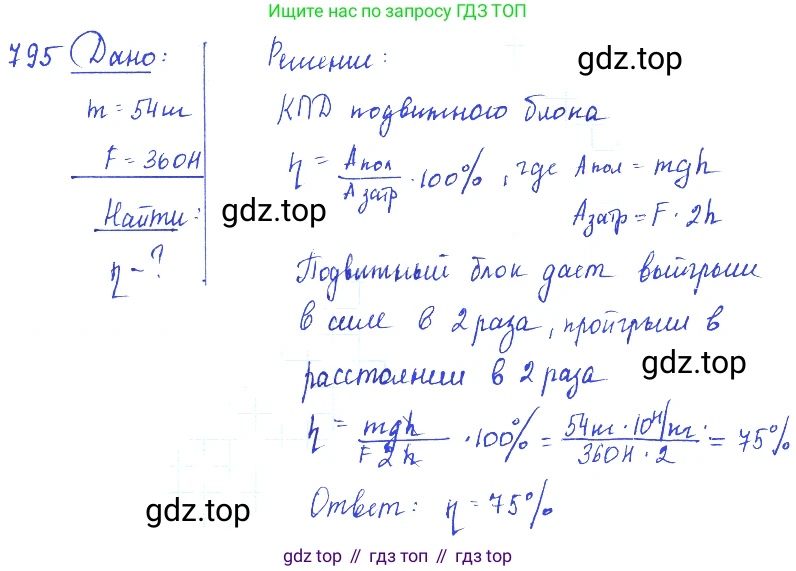 Ищите нас по запросу ГДЗ ТОП
795 Дано:
m = 54 кг
F = 360Н
Найти:
η - ?
Решение:
gdz.top
КПД подвижного блока
η = Апол / Азатр · 100%, где Апол = mgh
Азатр = F · 2h
gdz.top
Подвижный блок дает выигрыш
в силе в 2 раза, пройгрыш в
расстоянии в 2 раза
gdz.top
η = mgh / F2h · 100% = 54кг · 10Н/кг / 360Н · 2 = 75%
gdz.top
Ответ: η = 75%
gdz.top
gdz top // гдз топ // gdz top